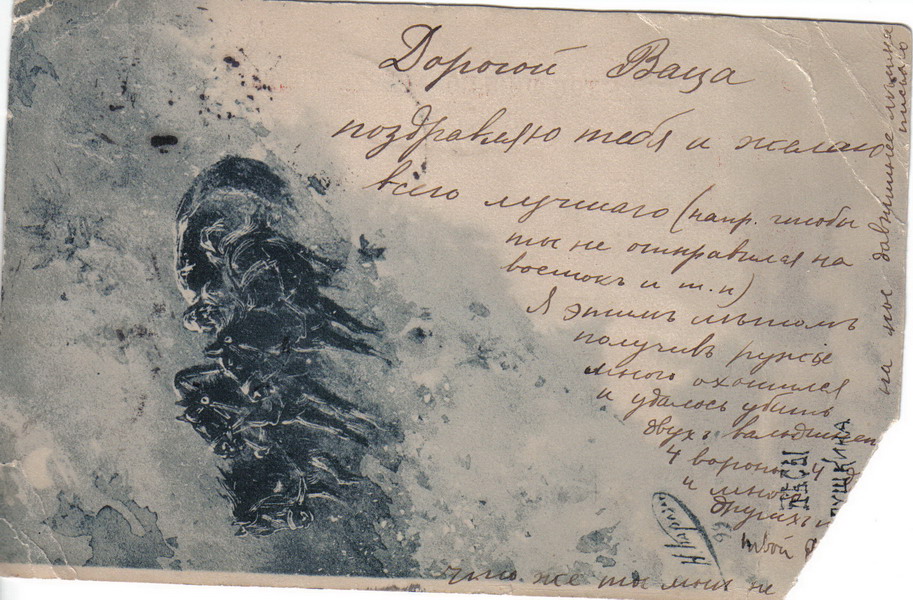 Дорогой Ваща
поздравляю тебя и желаю
всего лучшаго (напр. чтобы
ты не отправился на
востокъ и т.п)
Я этимъ лѣтомъ
получивъ ружье
много охотился
и удалось убить
двухъ вальдшнеп
4 вороны 4
и много
другихъ
твой
что же ты мнѣ не
на мое давнишнее письмо